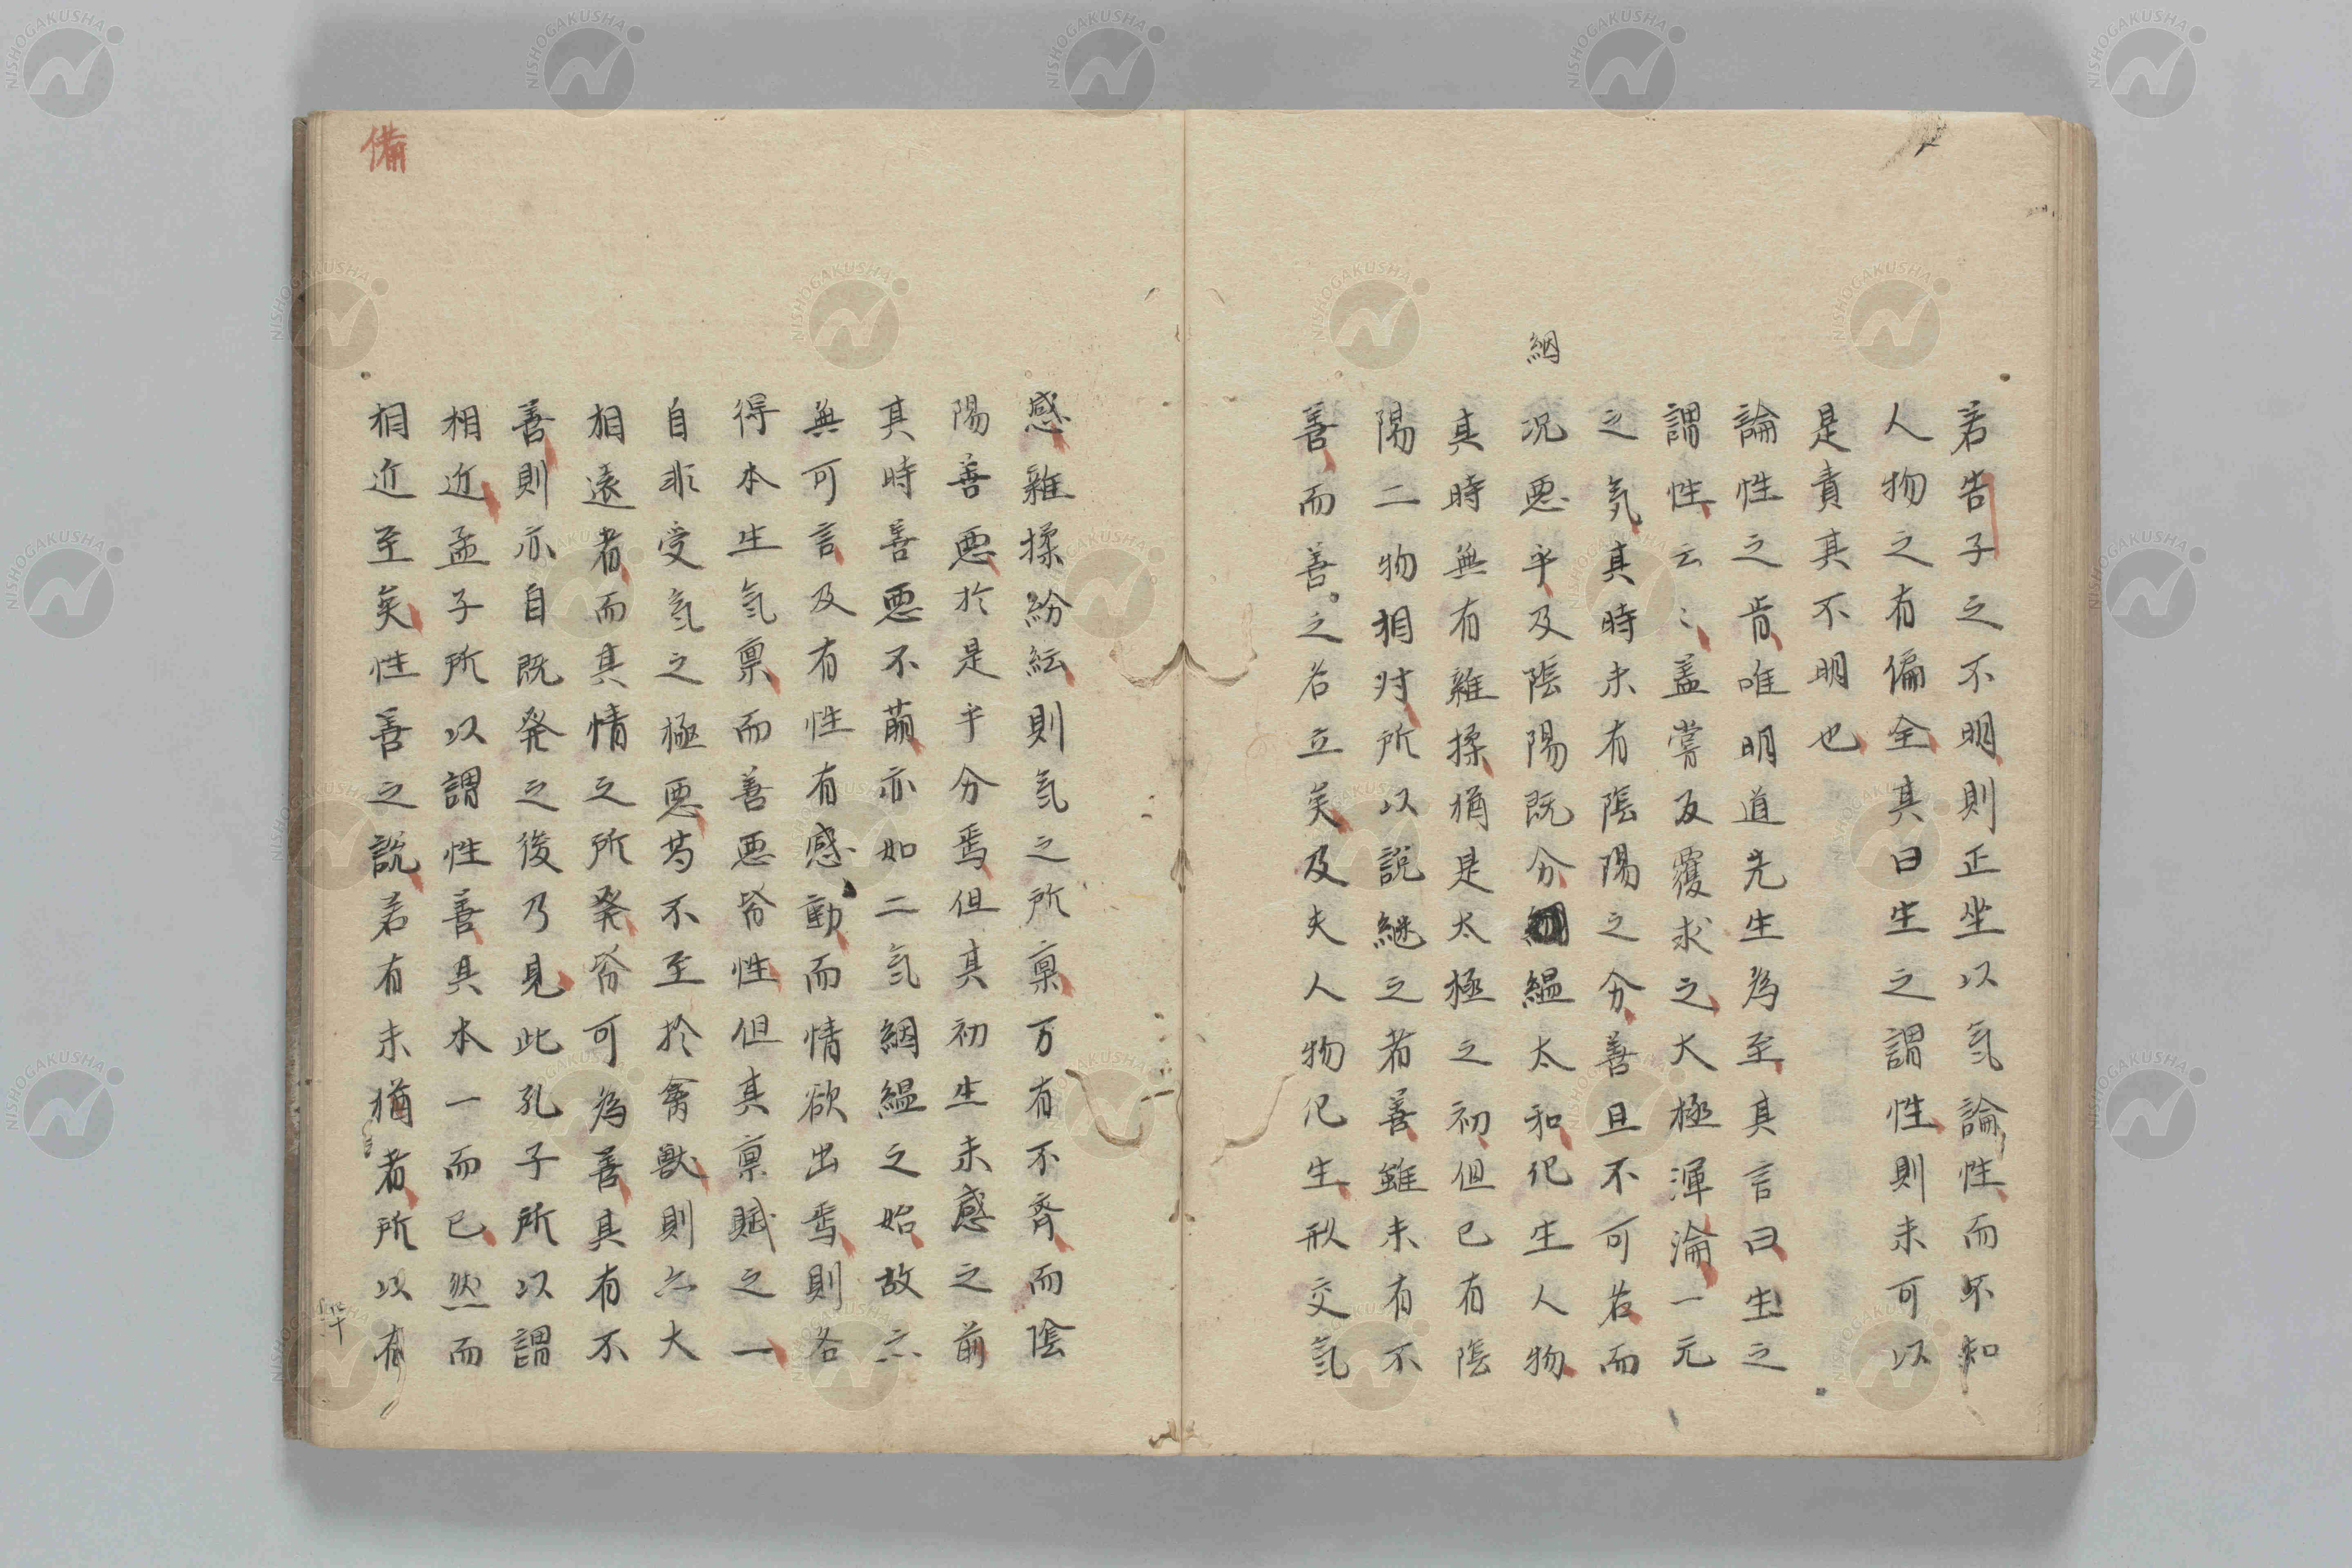 若告子之不明則正坐以気論性而不知
人物之有偏全其曰生之謂性則未可以
是責其不明也
論性之肯唯明道先生為至其言曰生之
謂性云〻盖嘗反覆求之大極渾淪一元
之気其時未有陰陽之分善且不可若而
絪
况悪乎及陰陽既分縕太和化生人物
真時無有雜揉猶是太極之初但已有陰
陽二物相対所以說継之者善雖未有不
善而善之名立矣及夫人物化生形交氣
感雜揉紛紜則氣之所稟万有不齊而陰
陽善悪於是乎分焉但其初生未感之前
其時善悪不萠亦如二氣絪縕之始故亦
無可言及有性有感動而情欲出焉則各
得本生氣稟而善悪岺性但其稟賦之一
自非受氣之極悪苟不至於禽獸則亦大
相遠者而其情之所発岺可為善其有不
善則亦自既発之後乃見此孔子所以謂
相近孟子所以謂性善其本一而已然而
相近至矣性善之說若有未猶者所以有
備
NISHOGAKUSHA